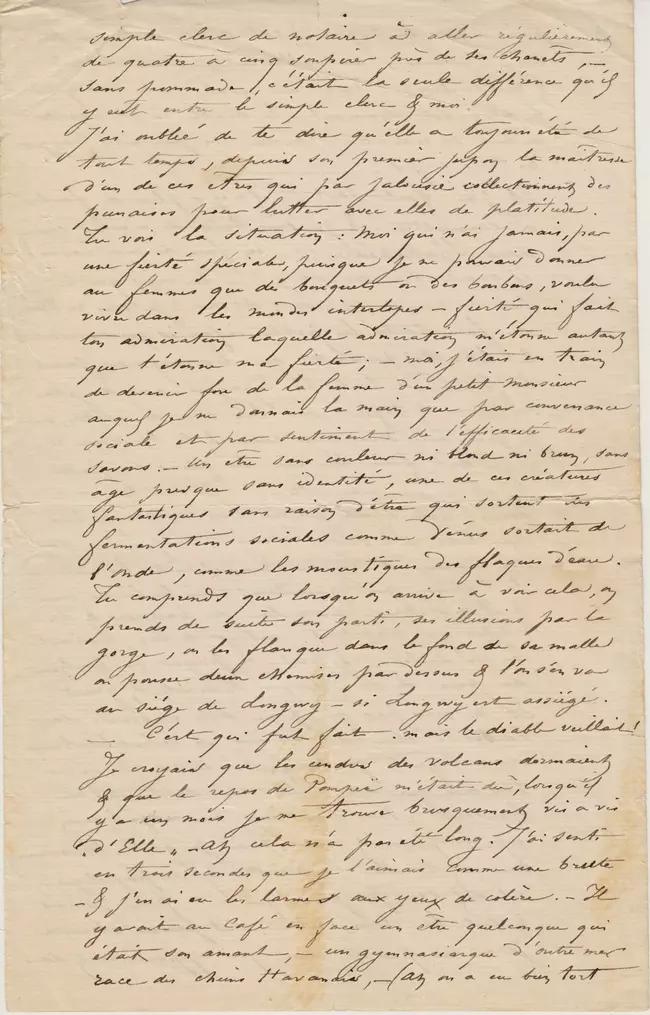 simple clerc de notaire à aller régulièrement
de quatre à cinq soupirer près de ses chenets, –
sans pommade, c'était la seule différence qu'il
y eut entre le simple clerc & moi.
J'ai oublié de te dire qu'elle a toujours été de
tout temps, depuis son premier jupon la maîtresse
d'un de ces êtres qui par jalousie collectionnent des
punaises pour lutter avec elles de platitude.
Tu vois la situation : Moi qui n'ai jamais, par
une fierté spéciale, puisque je ne pouvais donner
au femmes que des bouquets ou des bonbons, voulu
vivre dans les mondes interlopes – fierté qui fait
ton admiration laquelle admiration m'étonne autant
que t'étonne ma fierté ; – moi, j'étais en train
de devenir fou de la femme d'un petit Monsieur
auquel je ne donnais la main que par convenance
sociale et par sentiment de l'efficacité des
savons. – Un être sans couleur ni blond ni brun, sans
âge presque sans identité, une de ces créatures
fantastiques sans raison d'être qui sortent des
fermentations sociales comme Vénus sortait de
l'onde, comme les moustiques des flaques d'eau.
Tu comprends que lorsqu'on arrive à voir cela, on
prends de suite son parti, ses illusions par la
gorge, on les flanque dans le fond de sa malle
on pousse deux chemises par dessus & l'on s'en va
au siège de Longwy – si Longwy est assiégé.
– C'est qui fut fait. mais le diable veillait !
Je croyais que les cendres des volcans dormaient
& que le repos de Pompeï m'était dû, lorsqu'il
y a un mois je me trouve brusquement vis a vis
"d'Elle" – Ah cela n'a pas été long. J'ai senti
en trois secondes que je l'aimais comme une brute
– & j'en ai eu les larmes aux yeux de colère. – Il
y avait au Café en face un être quelconque qui
était son amant, – un gymnasiarque d'outre mer
race des chiens Havanais, – (ah on a eu bien tort